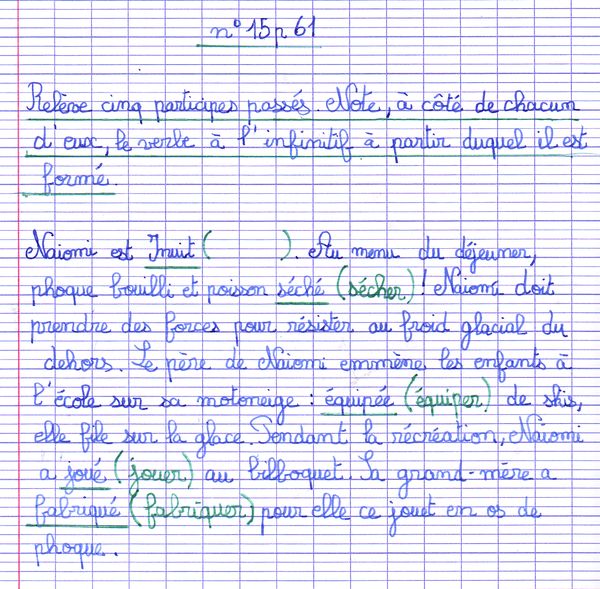 n° 15 p 61
Relève cinq participes passés. Note, à côté de chacun
d'eux, le verbe à l'infinitif à partir duquel il est
formé.
Naiomi est Inuit ( ). Au menu du déjeuner,
phoque bouilli et poisson séché (sécher) ! Naiomi doit
prendre des forces pour résister au froid glacial du
dehors. Le père de Naiomi emmène les enfants à
l'école sur sa motoneige : équipée (équiper) de skis,
elle file sur la glace. Pendant la récréation, Naiomi
a joué (jouer) au bilboquet. Sa grand-mère a
fabriqué (fabriquer) pour elle ce jouet en os de
phoque.